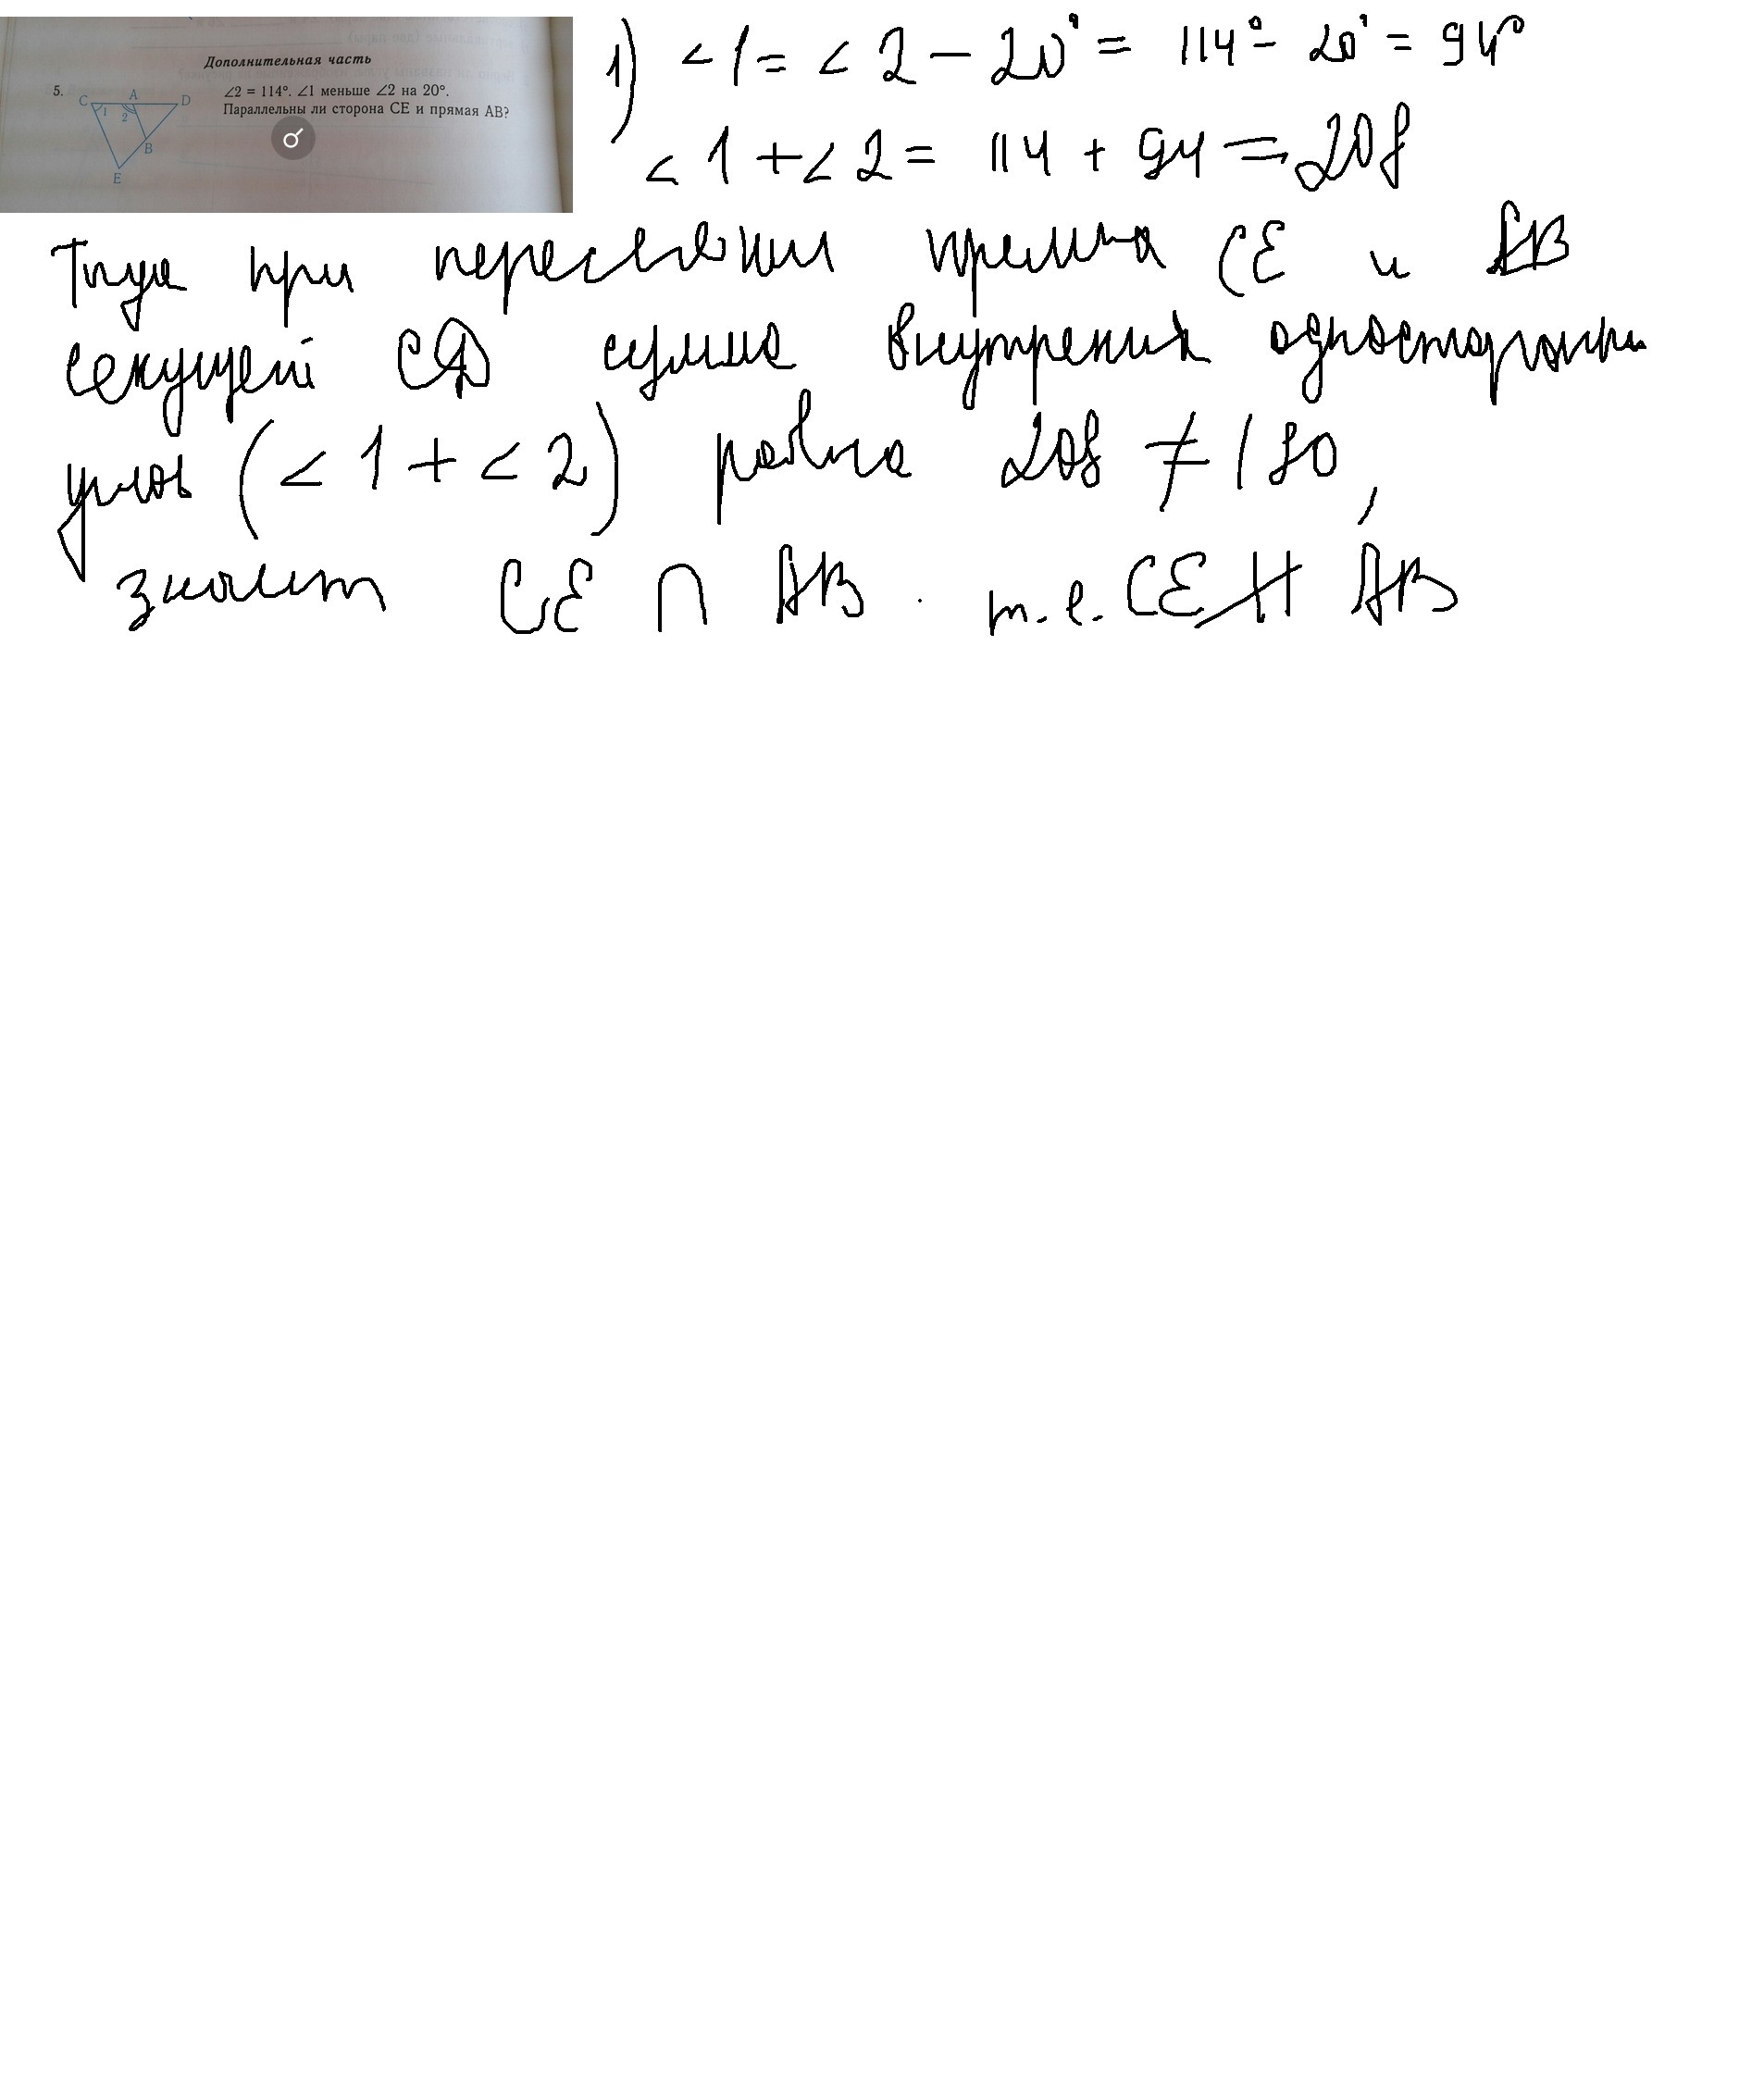 Дополнительная часть
5.
∠2 = 114°. ∠1 меньше ∠2 на 20°.
Параллельны ли сторона CE и прямая AB?
C A D
1 2
B
E
1) ∠1 = ∠2 − 20° = 114° − 20° = 94°
∠1 + ∠2 = 114 + 94 = 208
Тогда при пересечении прямых CE и AB
секущей CD сумма внутрених односторонних
углов (∠1 + ∠2) равна 208 ≠ 180,
значит CE ∩ AB. т.е. CE ∦ AB